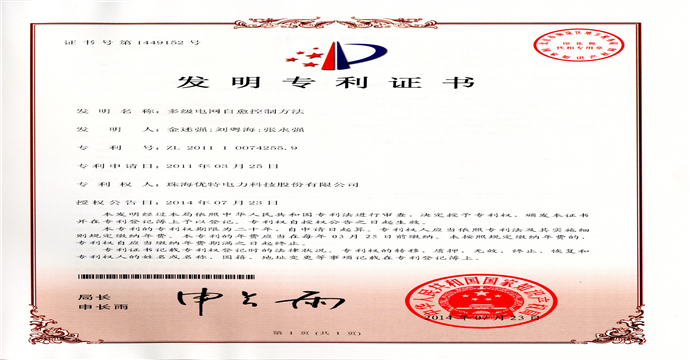 证书号第1449152号
发明专利证书
发明名称：多级电网自愈控制方法
发明人：金述强;刘粤海;张永强
专利号：ZL 2011 1 0074255.9
专利申请日：2011年03月25日
专利权人：珠海优特电力科技股份有限公司
授权公告日：2014年07月23日
本发明经过本局依照中华人民共和国专利法进行审查，决定授予专利权，颁发本证书
并在专利登记簿上予以登记。专利权自授权公告之日起生效。
本专利的专利权期限为二十年，自申请日起算。专利权人应当依照专利法及其实施细
则规定缴纳年费。本专利的年费应当在每年03月25日前缴纳。未按照规定缴纳年费的，
专利权自应当缴纳年费期满之日起终止。
专利证书记载专利权登记时的法律状况。专利权的转移、质押、无效、终止、恢复和
专利权人的姓名或名称、国籍、地址变更等事项记载在专利登记簿上。
局长
申长雨
申长雨
中华人民共和国国家知识产权局
2014年07月23日
第1页(共1页)